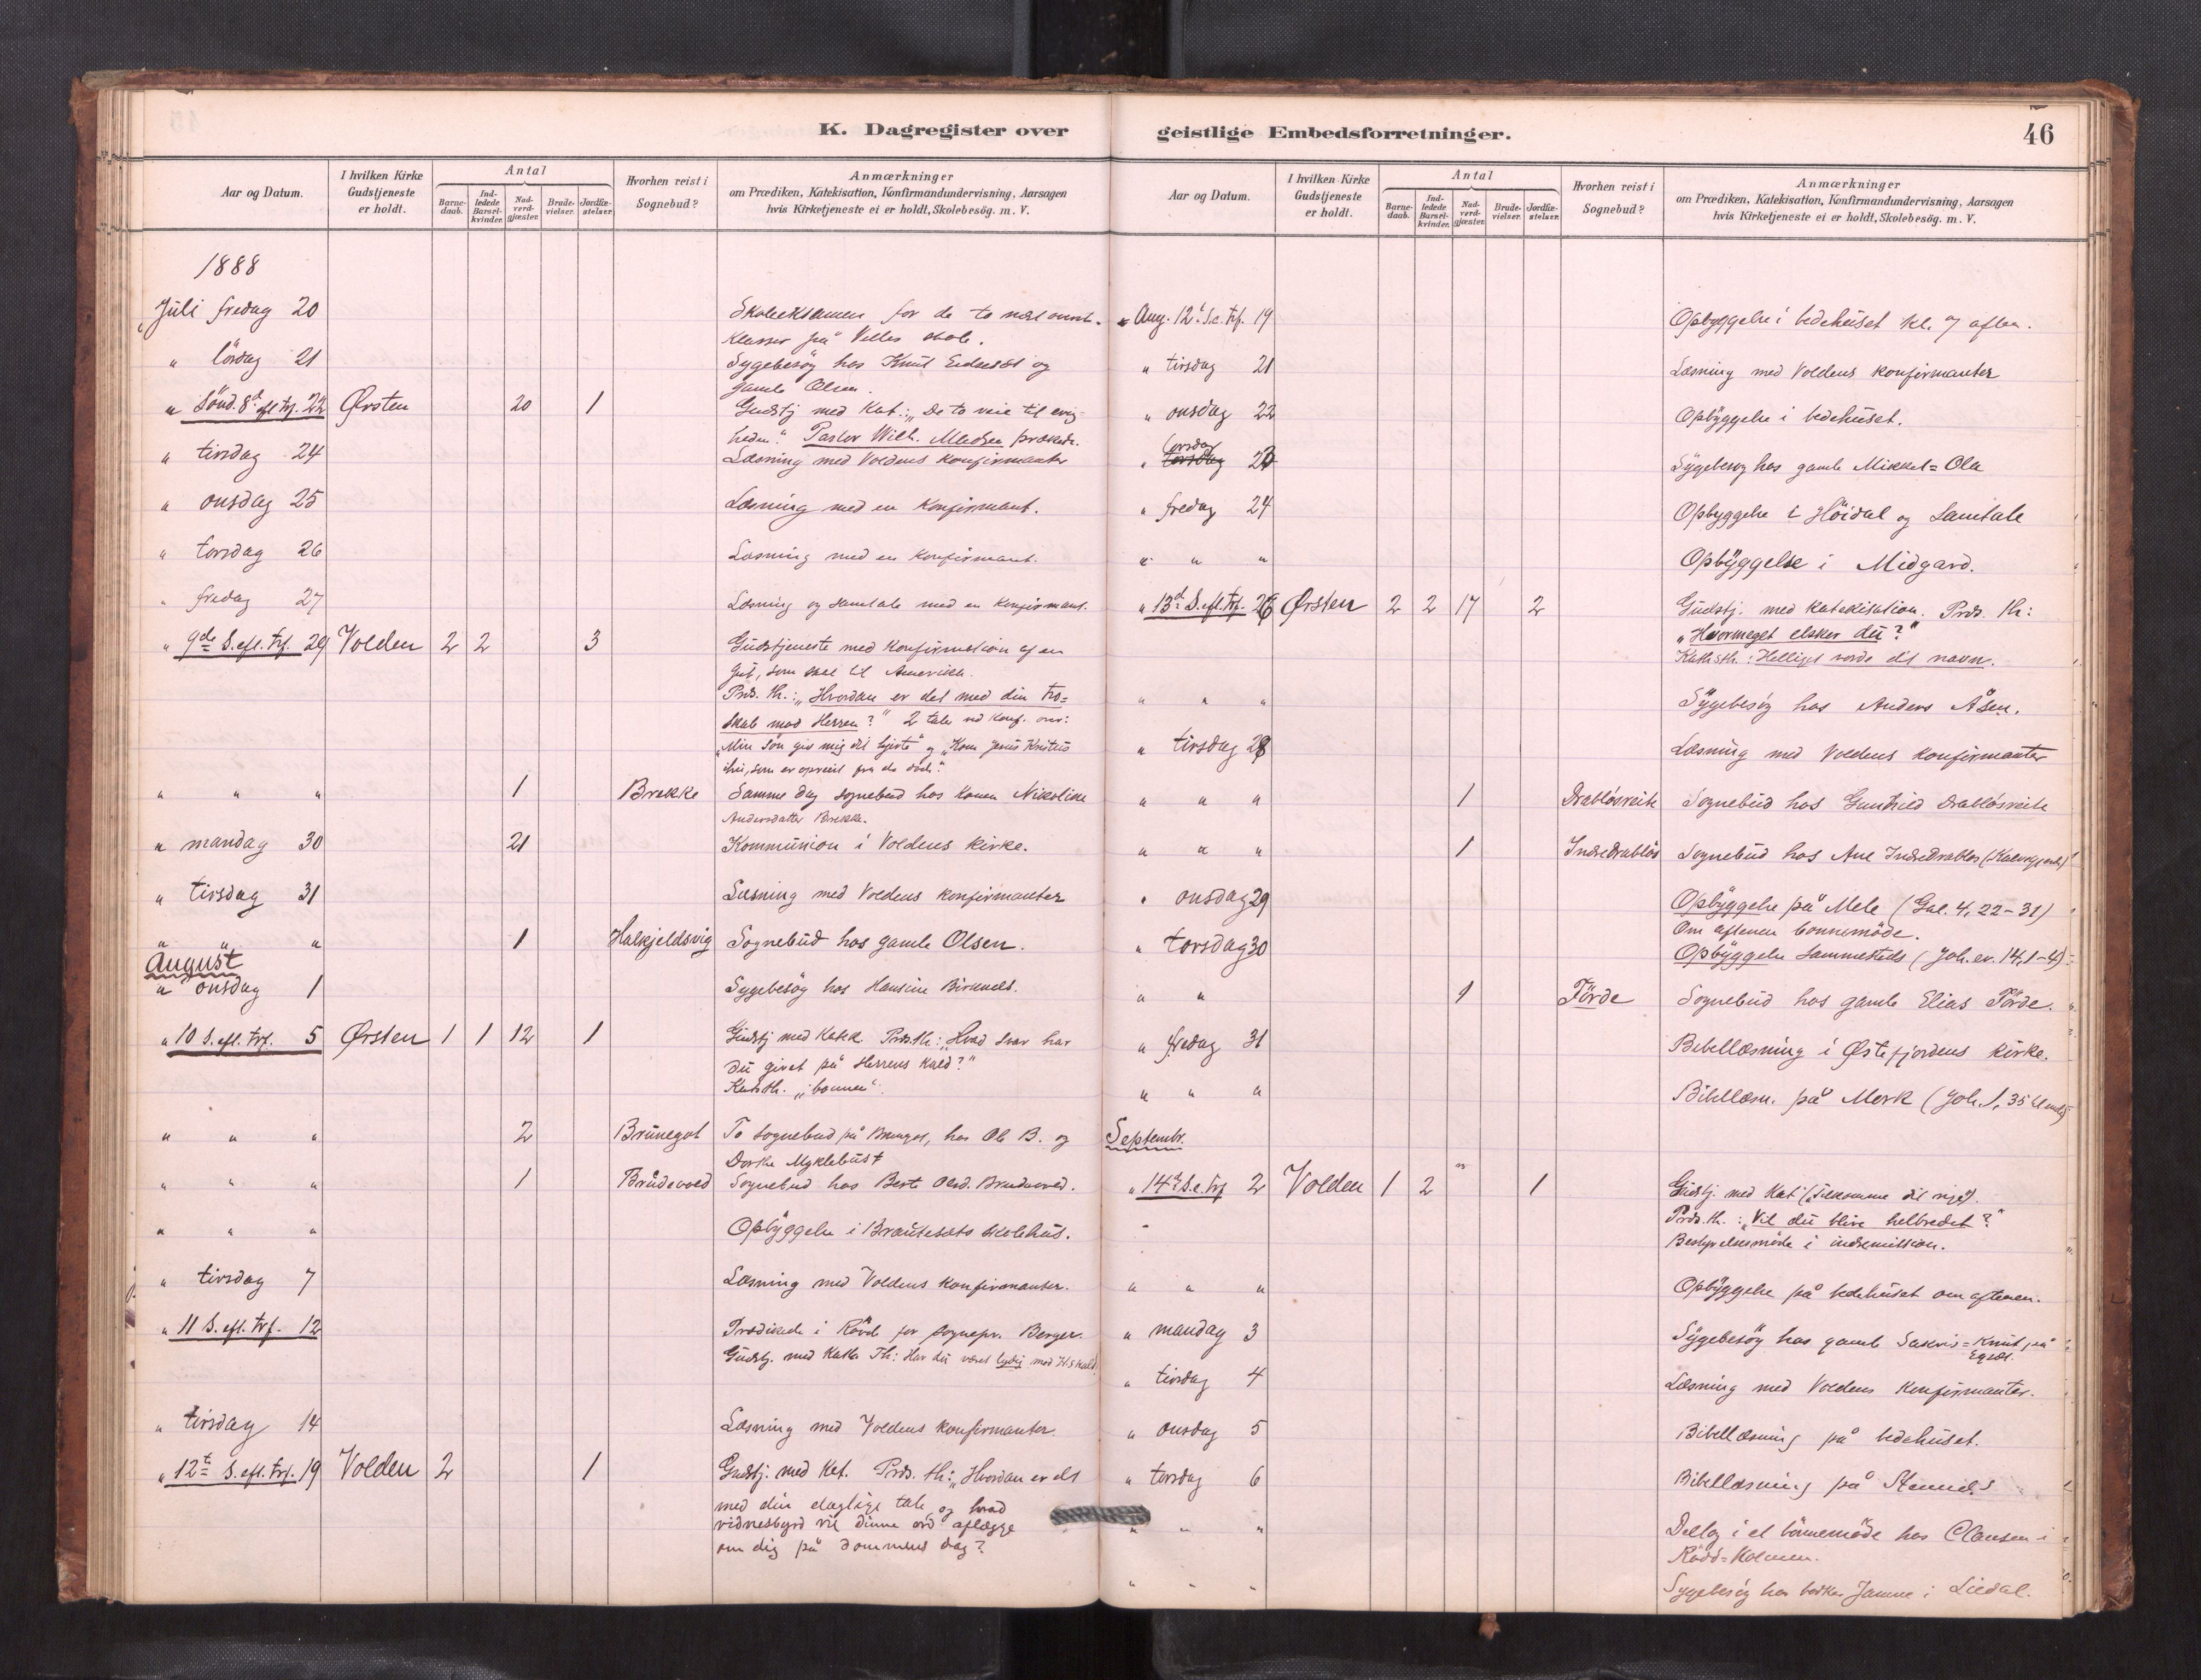 K. Dagregister over
geistlige Embedsforretninger.
46
Aar og Datum.
I hvilken Kirke Gudstjeneste er holdt.
Antal
Barne-daab.
Ind-ledede Barsel-kvinder.
Nad-verd-gjæster.
Brude-vielser.
Jordfæ-stelser.
Hvorhen reist i Sognebud?
Anmærkninger
om Prædiken, Katekisation, Konfirmandundervisning, Aarsagen
hvis Kirketjeneste ei er holdt, Skolebesög. m. V.
1888
Juli fredag 20 Skoleeksamen for de to
klasser på skole.
" lördag 21 Sygebesög hos Knut og
gamle Olsen.
" Sönd. 8d efl trf. 22 Ørsten 20 1 Gudstj med Kat.: "De to veie til evig-
heden." Pastor Wilh. prækede.
" tirsdag 24 Læsning med Voldens konfirmanter
" onsdag 25 Læsning med en konfirmant.
" torsdag 26 Læsning med en konfirmant.
" fredag 27 Læsning og samtale med en konfirmant.
" 9de S. efl. trf. 29 Volden 2 2 3 Gudstjeneste med konfirmation af en
gut, som skal til Amerika.
Præd. th.: "Hvordan er det med din tro-
skab mod Herren?" 2 tale ved konf. over:
"Min sön giv mig dit hjerte" og "Kom Jesus Kristus
ihu, som er opreist fra de döde".
" " " 1 Brekke Samme dag sognebud hos konen Nikoline
Andersdatter Brekke.
" mandag 30 21 Kommunion i Voldens kirke.
" tirsdag 31 Læsning med Voldens konfirmanter
" " " 1 Halkjeldsvig Sognebud hos gamle Olsen.
August
" onsdag 1 Sygebesög hos Hansine
" 10 S. efl. trf. 5 Ørsten 1 1 12 1 Gudstj med Katek. Præd. th: "Hvad svar har
du givet på Herrens kald?"
Kat. th. "bönnen".
" " " 2 Brunegot To sognebud på hos Ole B. og
Dorthe Myklebust
" " " 1 Brudevold Sognebud hos Berte Olsd. Brudevold.
" " " Opbyggelse i skolehus.
" tirsdag 7 Læsning med Voldens konfirmanter.
" 11 S. efl. trf. 12 Prædikede i for sognepr. Berger.
Gudstj. med Th: Har du været lydig mod H.s kald
" tirsdag 14 Læsning med Voldens konfirmanter.
" 12t S. efl. trf. 19 Volden 2 1 Gudstj. med Kat. Præd. th: "Hvordan er det
med din daglige tale, og hvad
vidnesbyrd vil dinne ord aflægge
om dig på dommens dag?
" Aug. 12t S.e. trf. 19 Opbyggelse i bedehuset kl. 7 aften.
" tirsdag 21 Læsning med Voldens konfirmanter
" onsdag 22 Opbyggelse i bedehuset.
" torsdag 23 Sygebesög hos gamle Mikkel=Ola
" fredag 24 Opbyggelse i Höidal og samtale
" " " Opbyggelse i Midgard.
" 13d S. efl. trf. 26 Ørsten 2 2 17 2 Gudstj. med katekisation. Præd. th:
"Hvormeget elsker du?"
Kat. th.: Helliget vorde dit navn.
" " " Sygebesög hos Anders Åsen.
" tirsdag 28 Læsning med Voldens konfirmanter
" " " 1 Drablösreite Sognebud hos Gunhild Drablösreite
" " " 1 Indredrablös Sognebud hos Ane Indredrablös
" onsdag 29 Opbyggelse på Mele (Gal. 4, 22-31)
Om aftenen bönnemöde.
" torsdag 30 Opbyggelse sammesteds (Joh. ev. 14, 1-4)
" " 1 Förde Sognebud hos gamle Elias Förde.
" fredag 31 Bibellæsning i Østefjordens kirke.
" " " Bibellæsn. på Mork (Joh. 1, 35
Septembr.
" 14d S.e. trf 2 Volden 1 2 " 1 Gudstj. med Kat (Tilkomme dit rige).
Præd. th.: "Vil du blive helbredet?"
Bestyrelsesmöde i indremission.
" " " Opbyggelse på bedehuset om aftenen.
" mandag 3 Sygebesög hos gamle Sakris=Knut på
Egset.
" tirsdag 4 Læsning med Voldens konfirmanter.
" onsdag 5 Bibellæsning på bedehuset.
" torsdag 6 Bibellæsning på
" " " Deltog i et bönnemöde hos Clausen i
Rödd=Holmen.
" " " Sygebesög hos i Liedal.